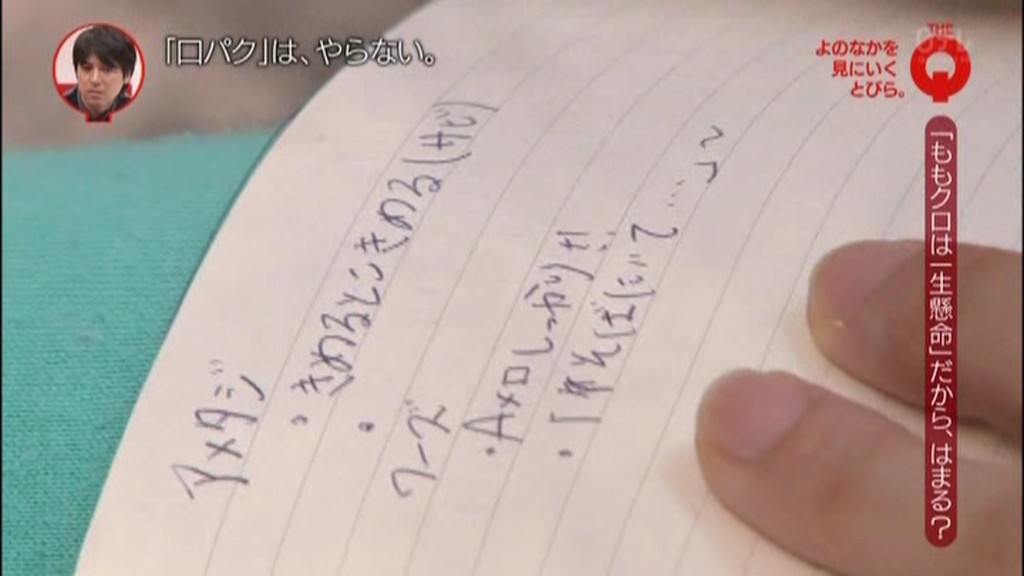 「口パク」は、やらない。
よのなかを
見にいく
とびら。
THE
Q
「ももクロは一生懸命」だから、はまる?
アメタジ
・きめるとこきめる(サビ)
・
ワーズ
・Aメロしっかり!!